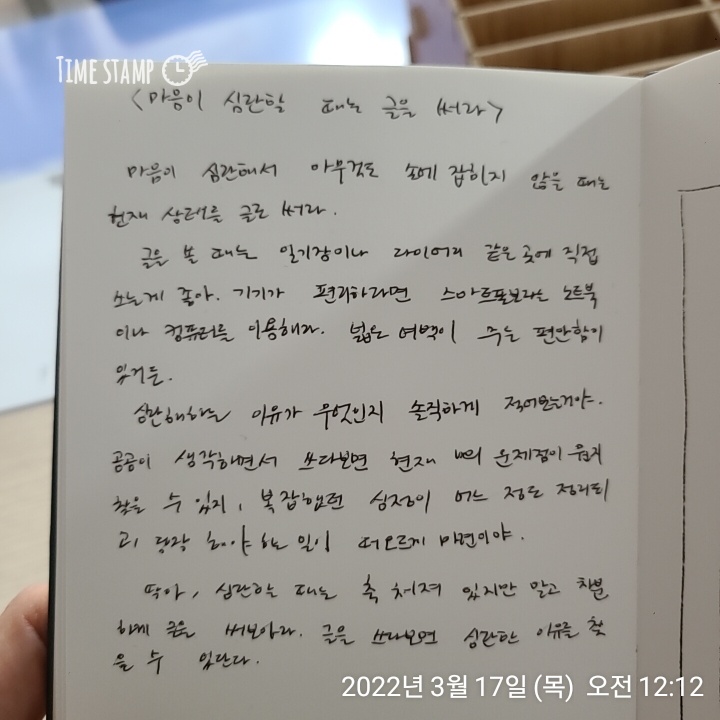 TIME STAMP
<마음이 심란할 때는 글을 써라>
마음이 심란해서 아무것도 손에 잡히지 않을 때는
현재 상태를 글로 써라.
글을 쓸 때는 일기장이나 다이어리 같은 곳에 직접
쓰는게 좋아. 기기가 편리하다면 스마트폰보다는 노트북
이나 컴퓨터를 이용해라. 넓은 여백이 주는 편안함이
있거든.
심란해하는 이유가 무엇인지 솔직하게 적어보는거야.
곰곰이 생각하면서 쓰다보면 현재 너의 문제점이 뭔지
찾을 수 있지, 복잡했던 심정이 어느 정도 정리되
고, 당장 해야 하는 일이 떠오르기 마련이야.
딸아, 심란할 때는 축 처져 있지만 말고 차분
하게 글을 써보아라. 글을 쓰다보면 심란한 이유를 찾
을 수 있단다.
2022년 3월 17일 (목) 오전 12:12